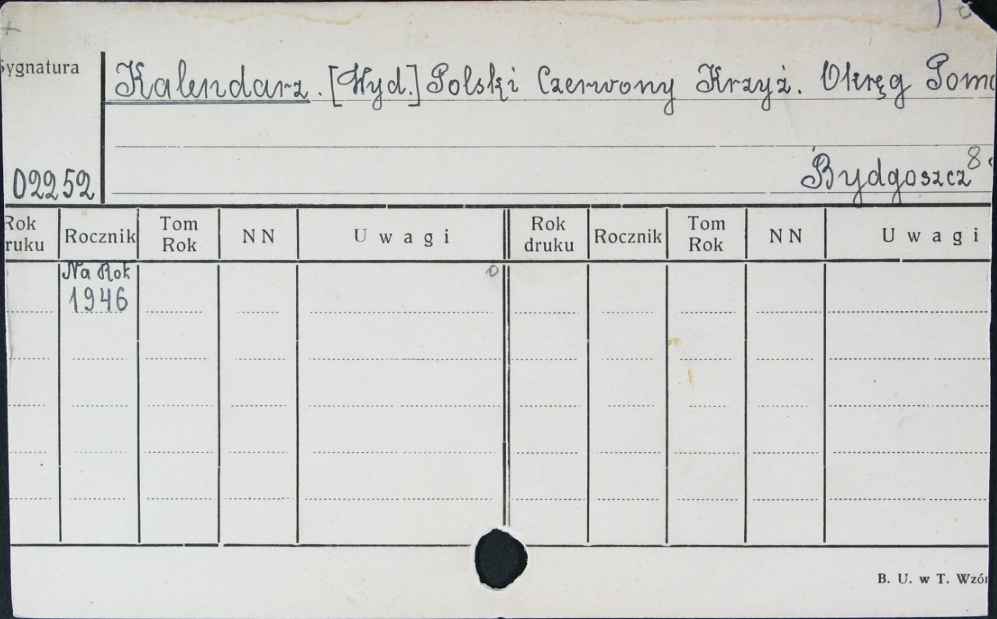 Sygnatura
Kalendarz. [Wyd.] Polski Czerwony Krzyż. Okręg Pomo
Bydgoszcz 8°
02252
Rok druku Rocznik Tom Rok NN Uwagi Rok druku Rocznik Tom Rok NN Uwagi
Na Rok
1946
B. U. w T. Wzór